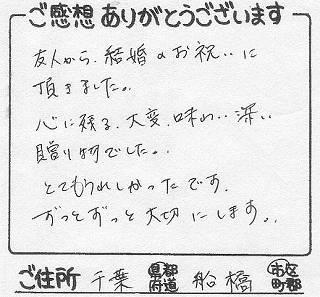 ご感想 ありがとうございます
友人から、結婚のお祝いに
頂きました。
心に残る、大変、味わい深い
贈り物でした。
とてもうれしかったです。
ずっとずっと大切にします。
ご住所 千葉 都道府県 船橋 市区町郡